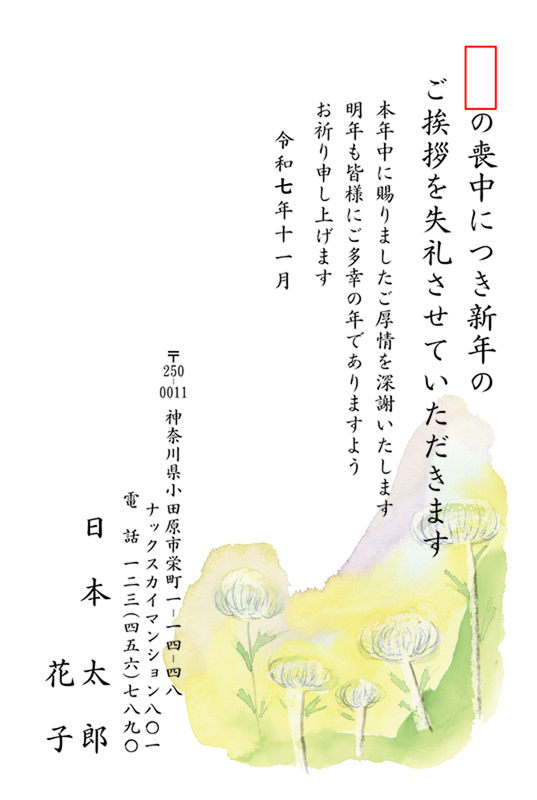 の喪中につき新年の
ご挨拶を失礼させていただきます
本年中に賜りましたご厚情を深謝いたします
明年も皆様にご多幸の年でありますよう
お祈り申し上げます
令和七年十一月
〒250-0011 神奈川県小田原市栄町一-一四-四八
ナックスカイマンション八〇一
電話 一二三(四五六)七八九〇
日本太郎
花子